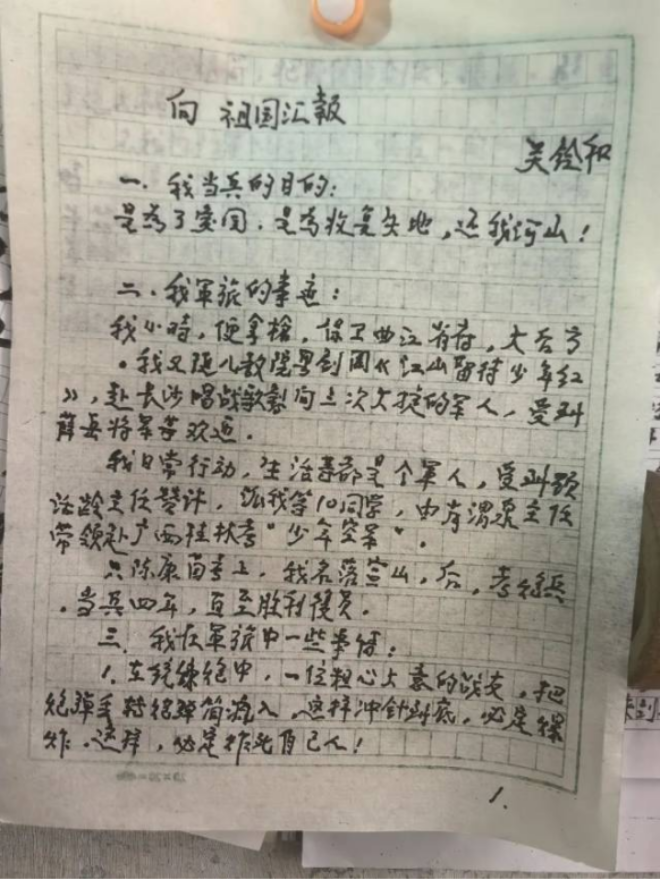 向 祖国汇報
吴铨和
一. 我当兵的目的:
是為了爱国. 是為收复失地, 还我河山!
二. 我军旅的事迹:
我小時, 便拿槍, 保卫曲江省府, 大后方
. 我又随儿教院粤剧团《江山留待少年红
》, 赴长沙唱战歌 向三次大捷的军人, 受到
薛岳将军等欢迎.
我日常行动, 生活等都是个军人, 受到
主任赞许, 派我等10同学, 由 主任
带领赴广西桂林考"少年空军".
只陈康 考上, 我名落孙山, 后, 考 兵
. 当兵四年, 直至胜利復员.
三. 我在军旅中一些事情:
1. 在 練 中, 一位粗心大意的战友, 把
炮弹 入 这样冲针到底, 必定爆
炸. 这样, 必定炸死自己人!
1.